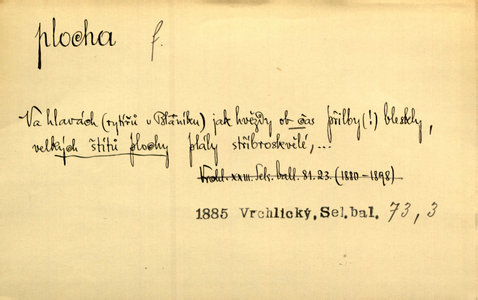 plocha f.
Na hlavách (rytířů v Blaníku) jak hvězdy ob čas přilby(!) bleskly,
velkých štítů plochy plály stříbroskvělé,...
Vrchl. XXIII. Sels. ball. 81. 23. (1880-1898)
1885 Vrchlický, Sel.bal. 73, 3